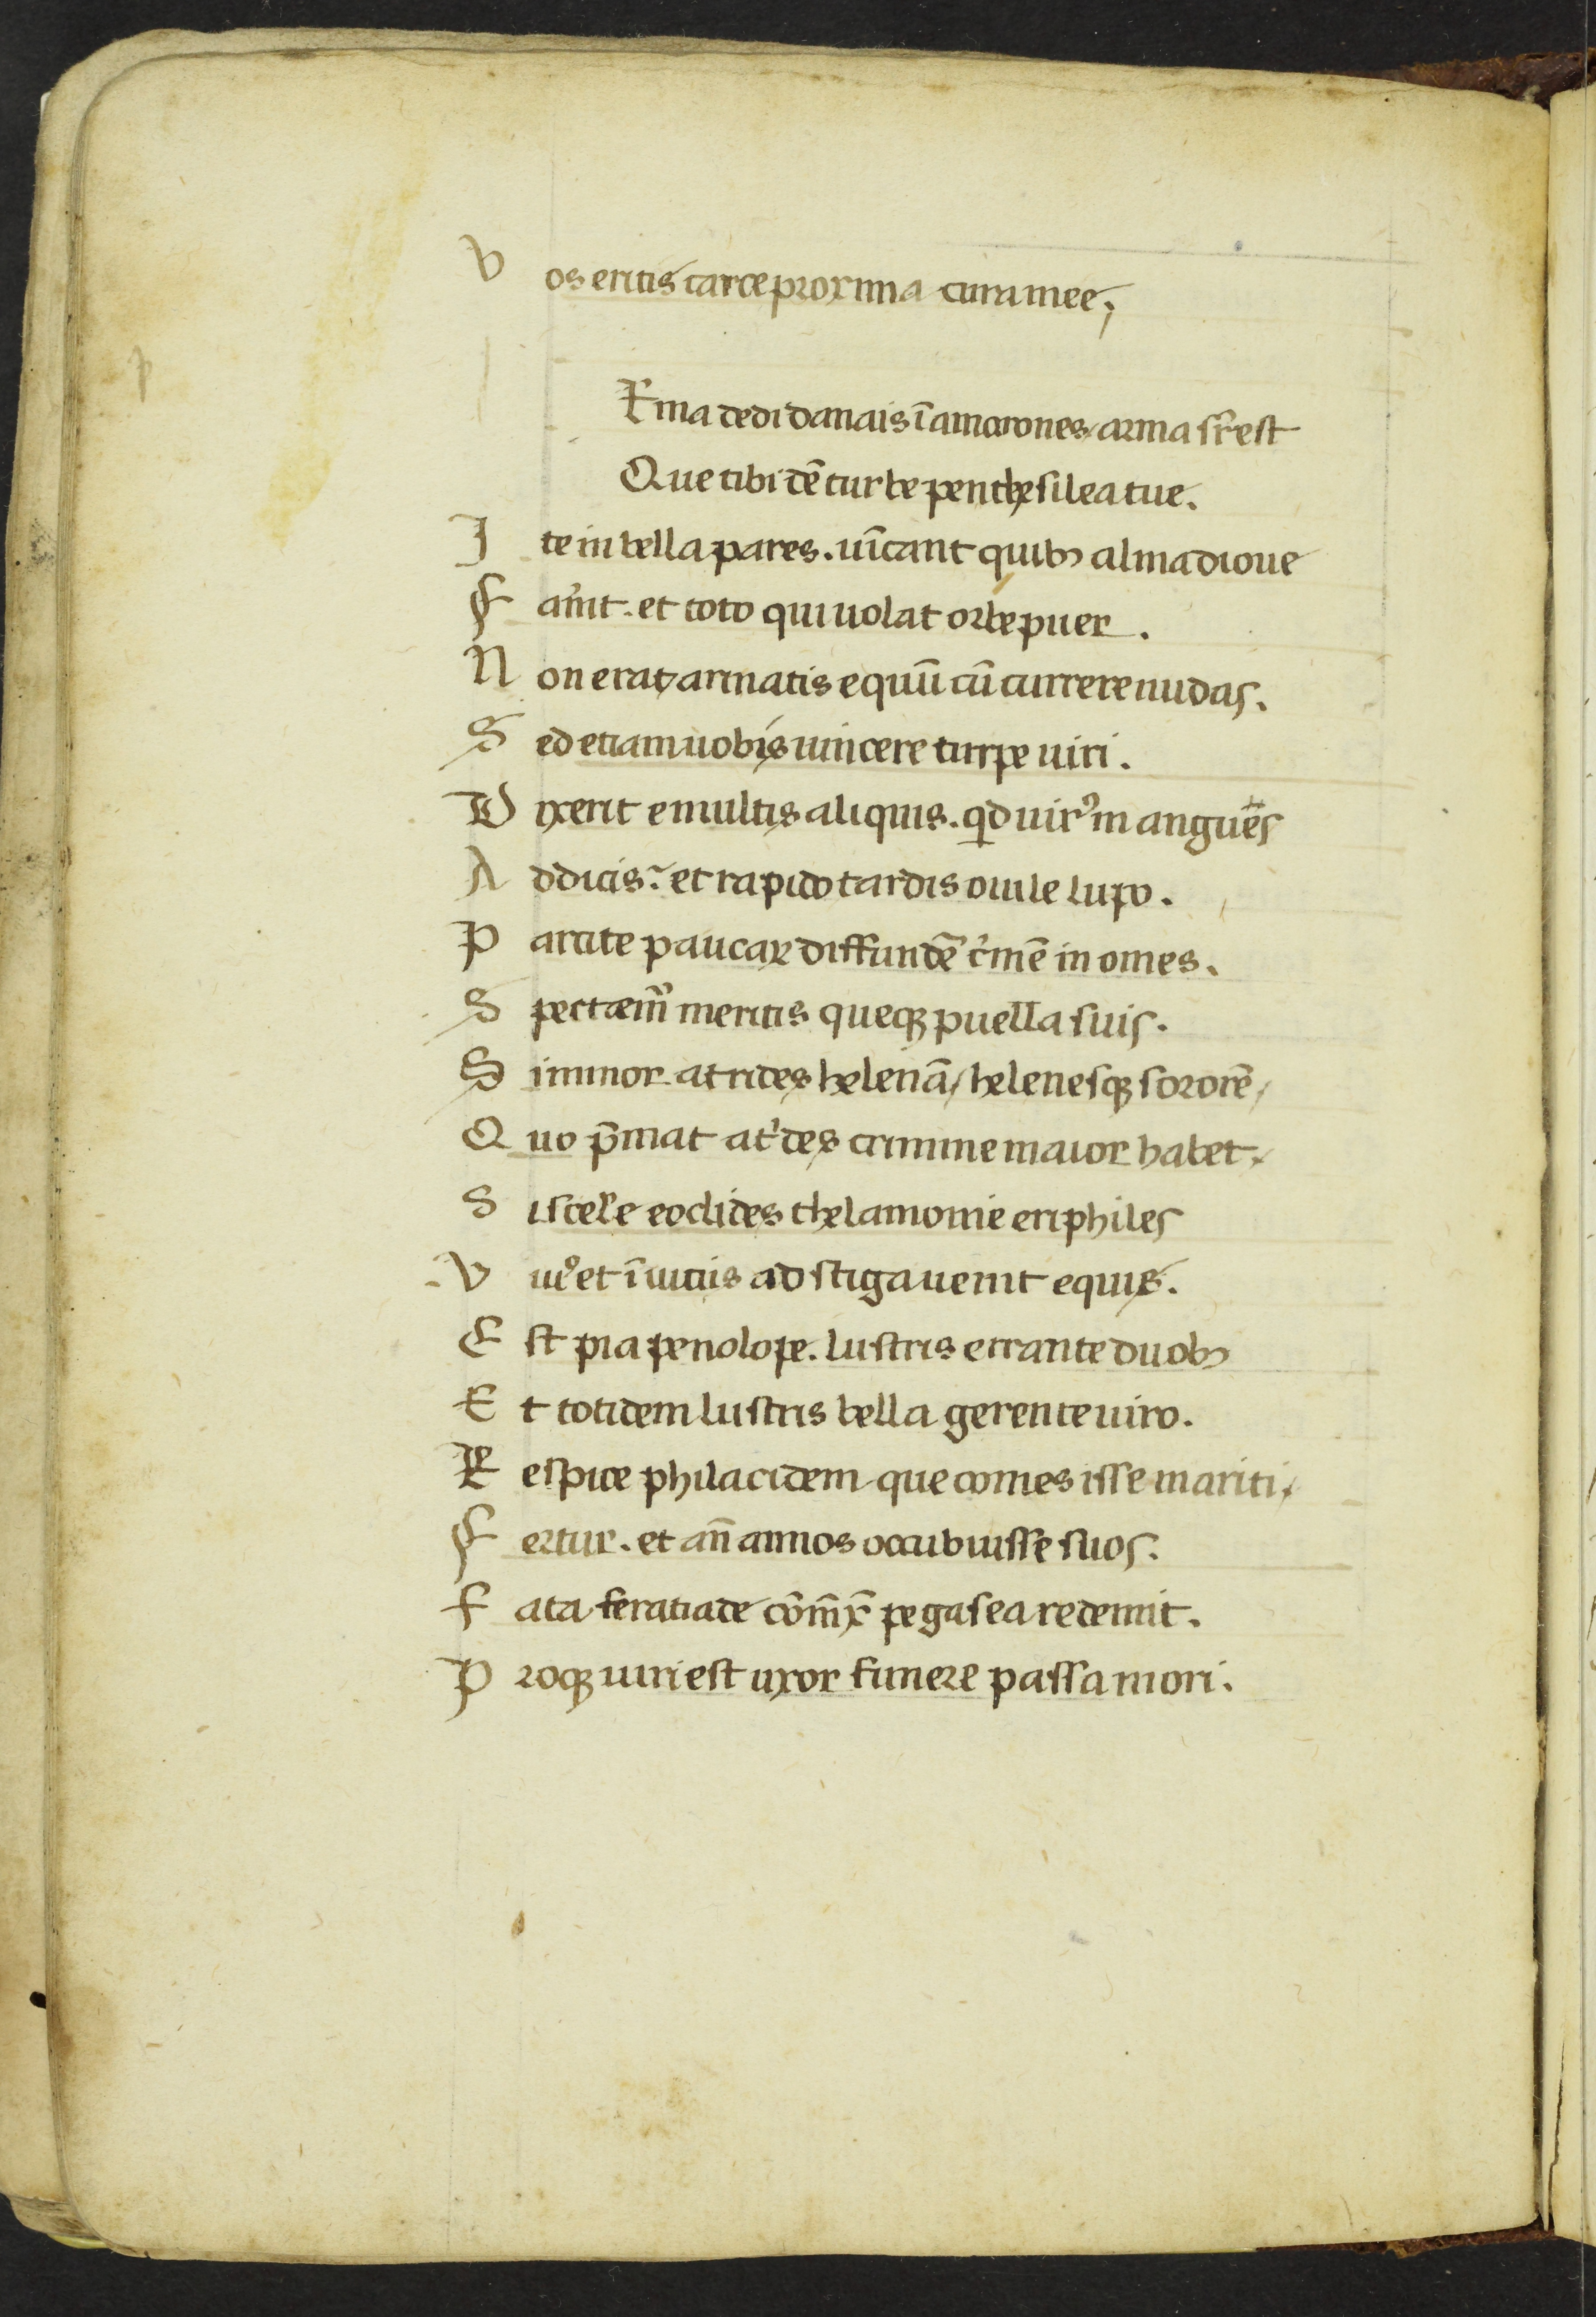 Vos eritis carce proxima cura mee;
p
Rma dedi danais ĩ amaxones, arma sr̃est
Que tibi dẽ turbe penthesilea tue.
Ite in bella pares. uĩcant quibꝫ alma dione
Fau̾it. et toto qui uolat orbe puer.
Non erat armatis equũ cũ currere nudas.
Sed etiam uobis uincere turpe uiri.
Dixerit e multis aliquis. qd uirꝰ in angues
Additis? et rapido tardis ouile lupo.
Parcite paucaꝝ diffundẽ c̾mẽ in omes.
Spectaemꝰ meritis queqꝫ puella suis.
Si minor atrides helenã, helenesqꝫ sororẽ,
Quo p̃mat at'des crimine maior habet.
Si scel'e eoclides thelamonie eriphiles
Viuꝰ et ĩ uiuis ad stiga uenit equis.
Est pia penolope. lustris errante duobꝫ
Et totidem lustris bella gerente uiro.
Respice philacidem que comes isse mariti,
Fertur. et añ annos occubuisse suos.
Fata feratiade cõiũx pegasea redemit.
Proqꝫ uiri est uxor funere passa mori.